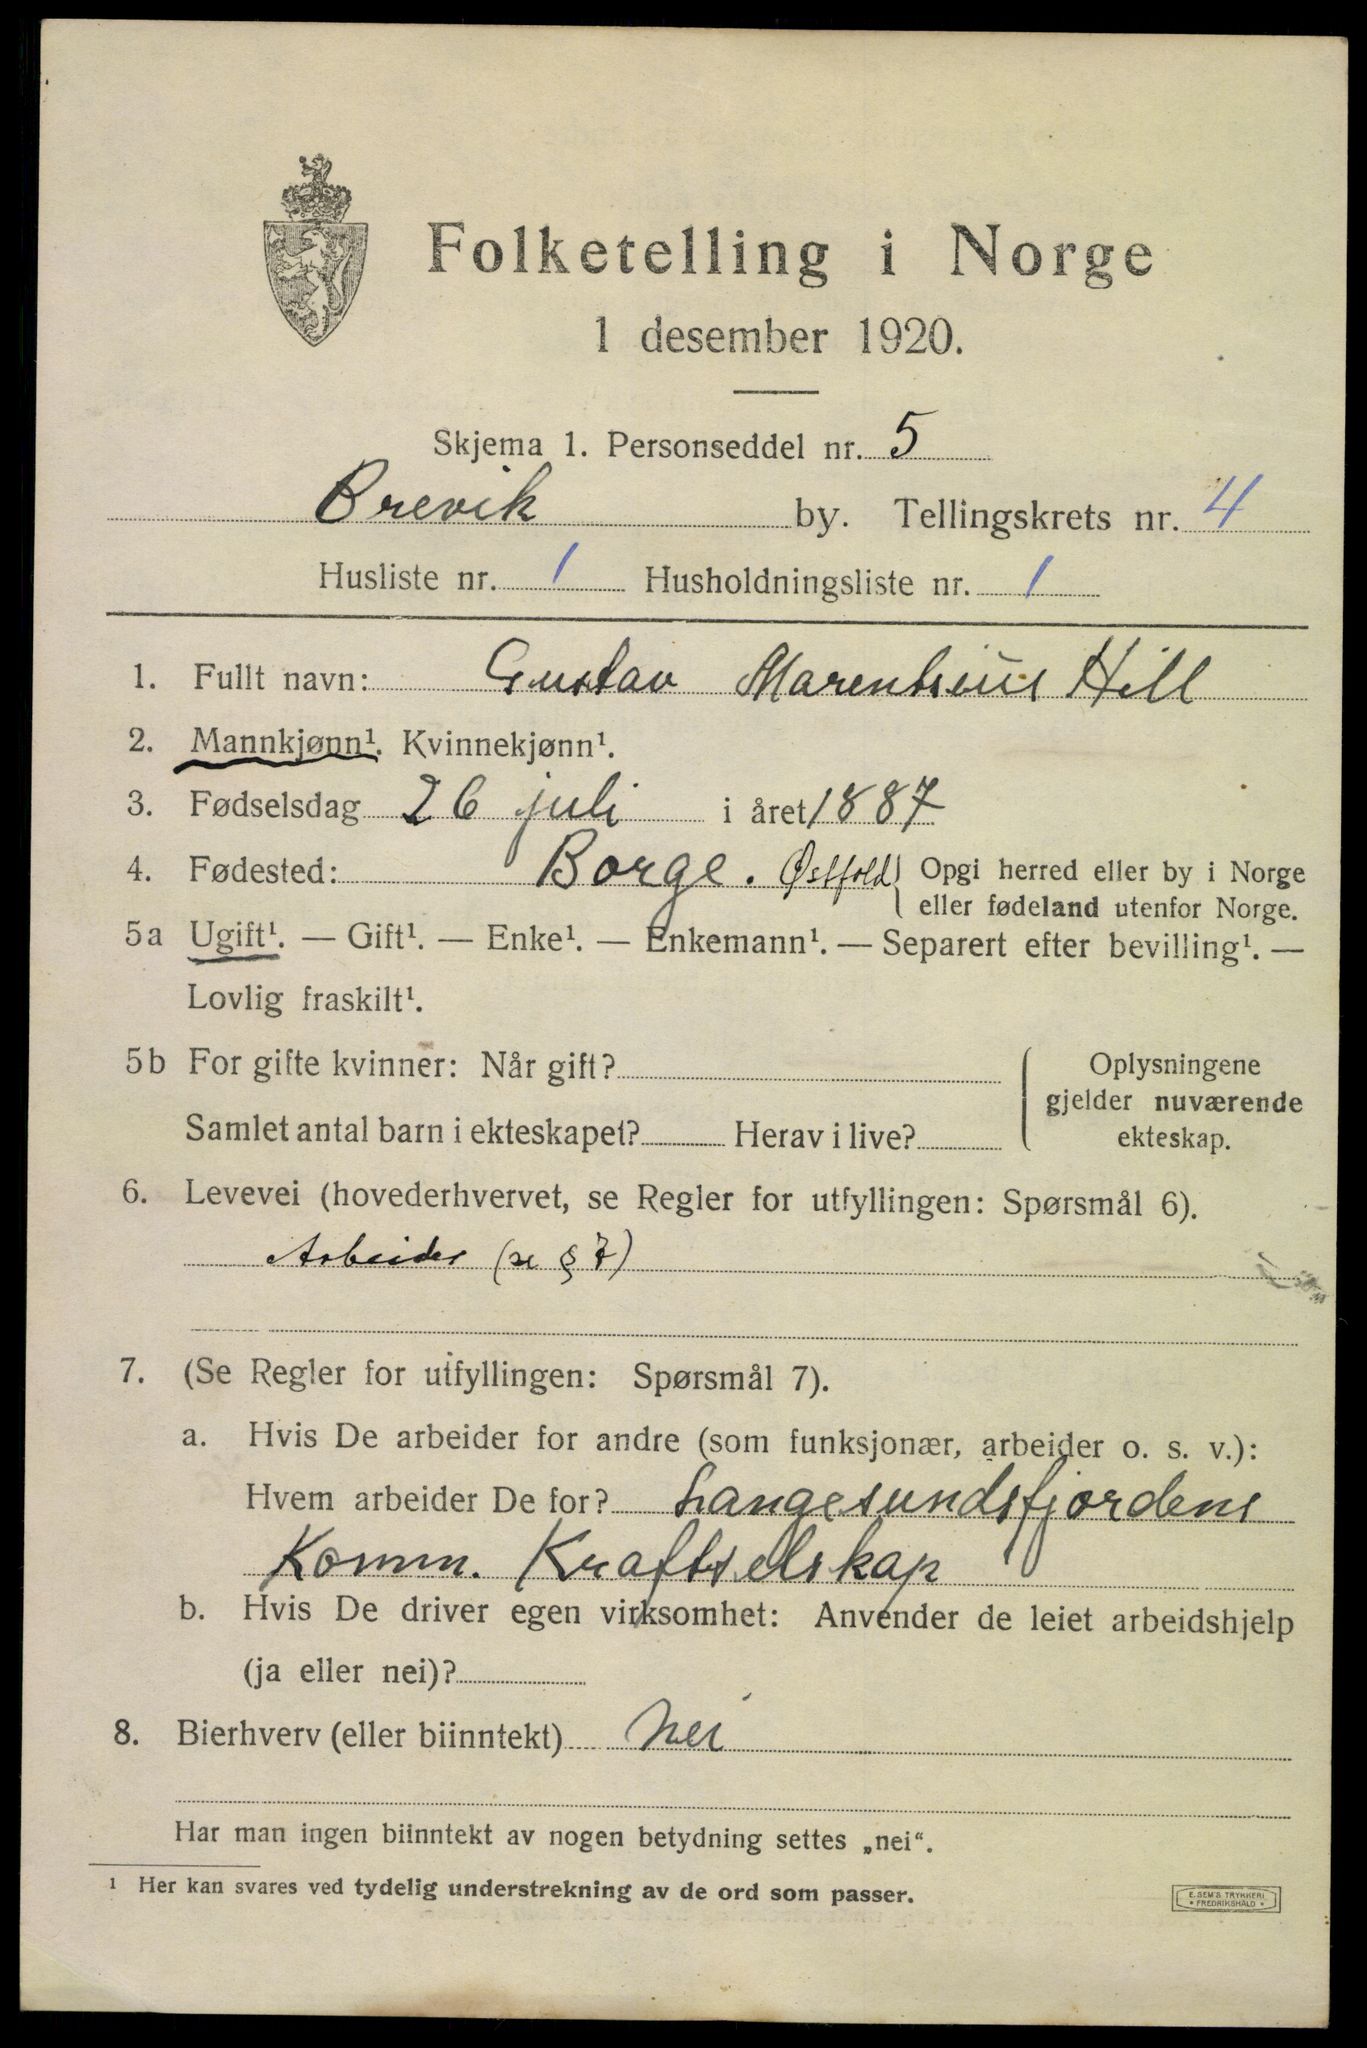 Folketelling i Norge
1 desember 1920.
Skjema 1. Personseddel nr. 5
Brevik by. Tellingskrets nr. 4
Husliste nr. 1 Husholdningsliste nr. 1
1. Fullt navn: Gustav Marentsius Hill
2. Mannkjønn¹. Kvinnekjønn¹.
3. Fødselsdag 26 juli i året 1887
4. Fødested: Borge. Østfold Opgi herred eller by i Norge
eller fødeland utenfor Norge.
5a Ugift¹. — Gift¹. — Enke¹. — Enkemann¹. — Separert efter bevilling¹. —
Lovlig fraskilt¹.
5b For gifte kvinner: Når gift?
Samlet antal barn i ekteskapet? Herav i live?
Oplysningene
gjelder nuværende
ekteskap.
6. Levevei (hovederhvervet, se Regler for utfyllingen: Spørsmål 6).
Arbeider (se § 7)
7. (Se Regler for utfyllingen: Spørsmål 7).
a. Hvis De arbeider for andre (som funksjonær, arbeider o. s. v.):
Hvem arbeider De for? Langesundsfjordens
Komm. Kraftselskap
b. Hvis De driver egen virksomhet: Anvender de leiet arbeidshjelp
(ja eller nei)?
8. Bierhverv (eller biinntekt) Nei
Har man ingen biinntekt av nogen betydning settes „nei“.
¹ Her kan svares ved tydelig understrekning av de ord som passer.
E. SEM'S TRYKKERI
* FREDRIKSHALD *